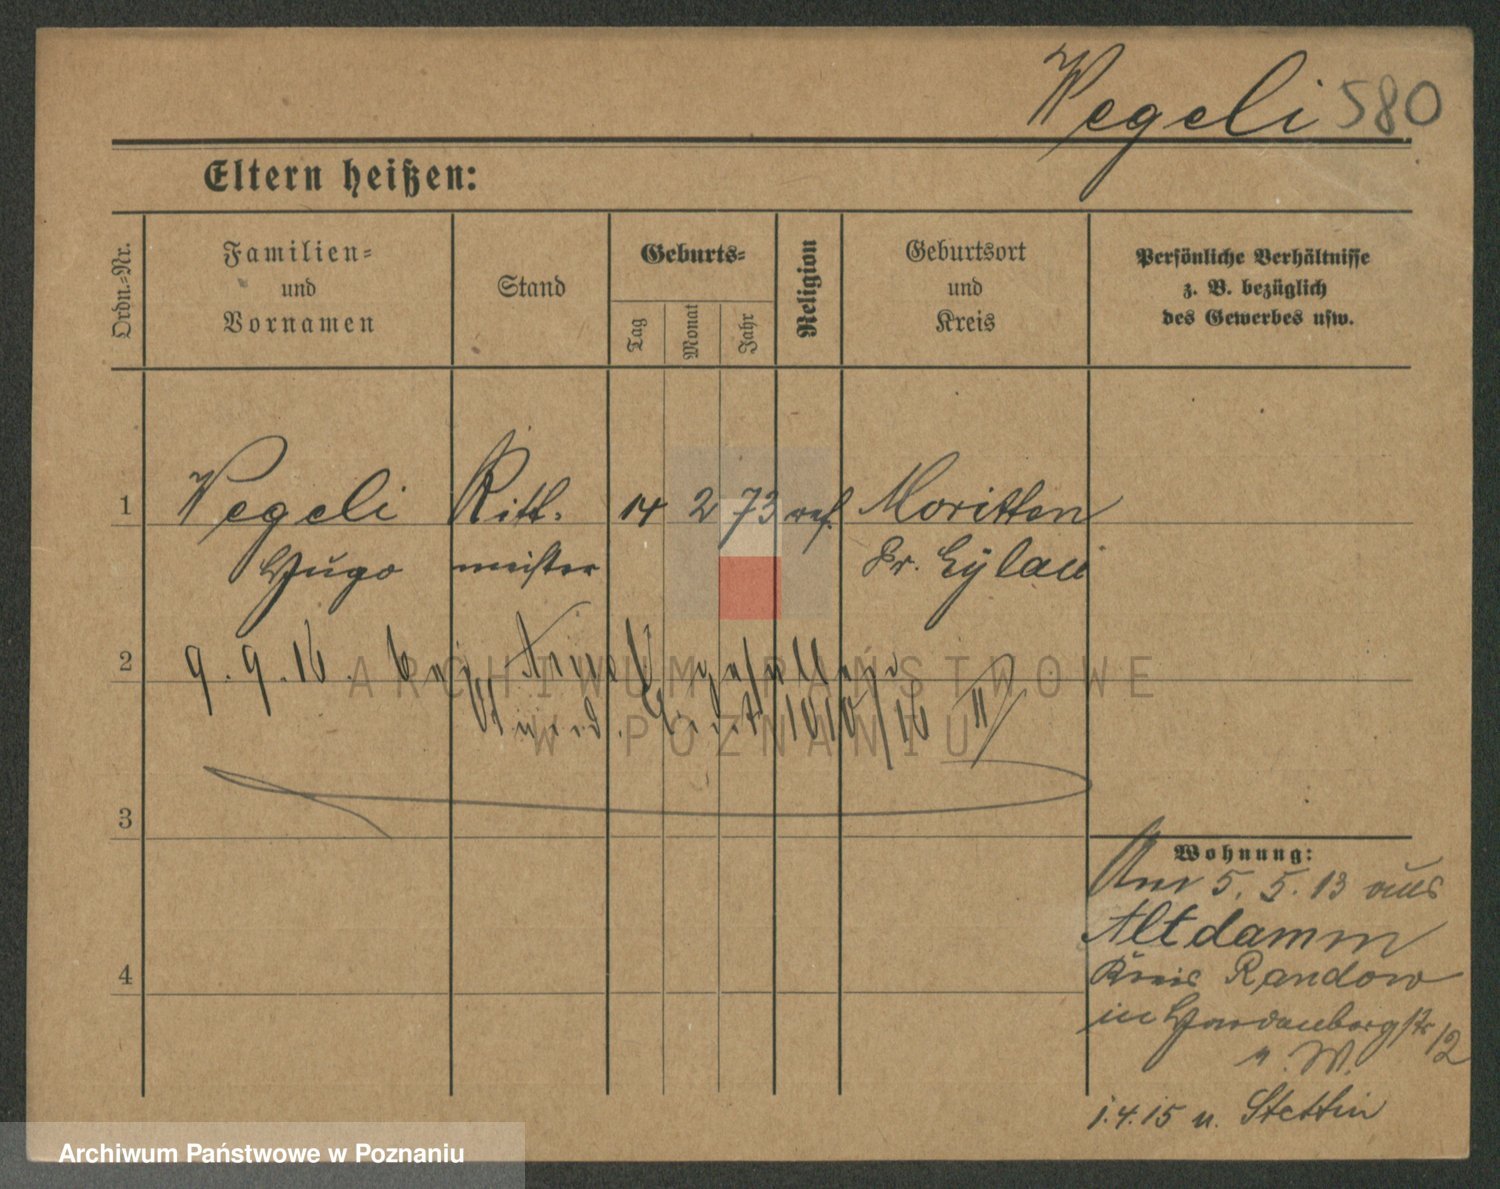 Wegeli 580
Eltern heißen:
Ordn.-Nr.
Familien- und Vornamen
Stand
Geburts-
Tag
Monat
Jahr
Religion
Geburtsort und Kreis
Persönliche Verhältnisse
z. B. bezüglich
des Gewerbes usw.
1 Wegeli Ritt- 14 2 73 ref. Moritten
Hugo meister Pr. Eylau
2 9.9.16. bei gefallen
3
4
Wohnung:
Am 5. 5. 13 aus
Altdamm
Kreis Randow
in Hardenbergstr 12
1.4.15 n. Stettin
ARCHIWUM PAŃSTWOWE
W POZNANIU
Archiwum Państwowe w Poznaniu